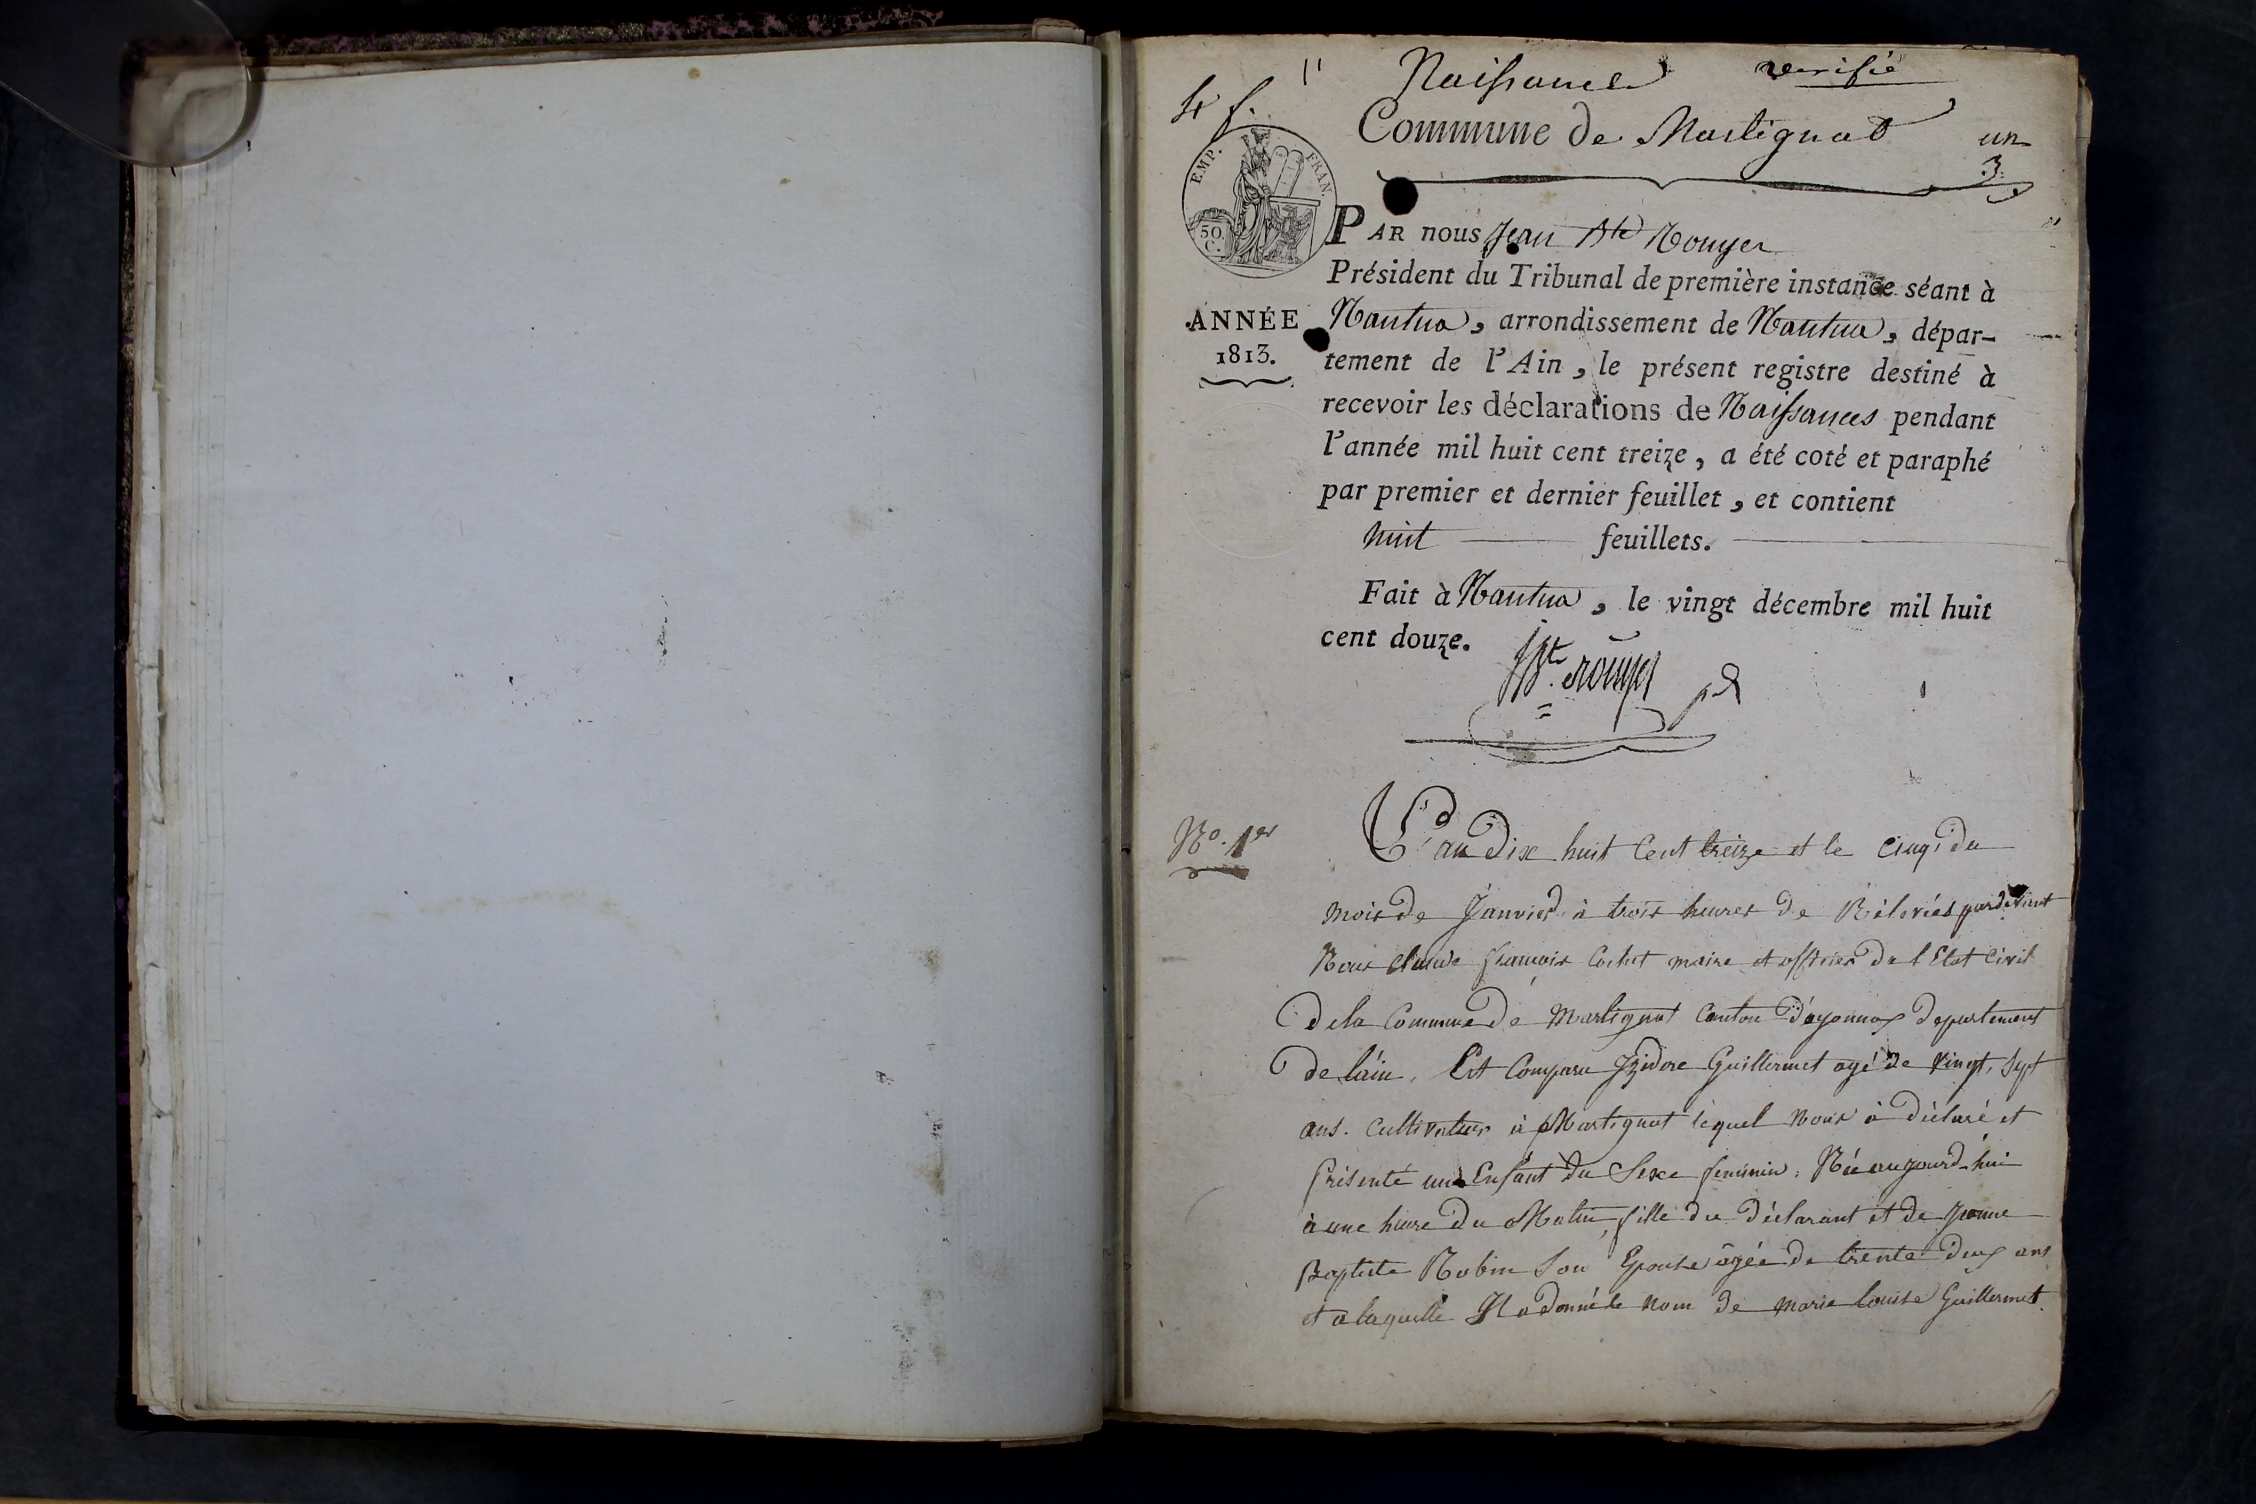 Naissance verifié
4 f.
Commune de Martignat
un
3
EMP. FRAN.
50.
C.
PAR nous Jean Bte Rouyer
Président du Tribunal de première instance séant à
Nantua, arrondissement de Nantua, dépar-
ANNÉE
1813.
tement de l'Ain, le présent registre destiné à
recevoir les déclarations de Naissances pendant
l'année mil huit cent treize, a été coté et paraphé
par premier et dernier feuillet, et contient
huit feuillets.
Fait à Nantua, le vingt décembre mil huit
cent douze.
JBt. rouyer pdt
No. 1er
L'an Dix huit Cent treize et le cinq du
mois de Janvier à trois heures de Rélevées pardevant
Nous claude francois Cochet maire et officier de l'Etat Civil
de la Commune de Martignat Canton d'oyonnax departement
de láin. Est Comparu Izidore Guillermet agé de Vingt, Sept
ans. Cultivateur à Martignat lequel Nous à déclaré et
Présenté un Enfant du Sexe feminin, Née aujourd-hui
à une heure du Matin, fille du déclarant et de Jeanne
Baptiste Robin Son Epouse âgée de trente deux ans
et a laquelle Il a donné le nom de Marie Louise Guillermet.